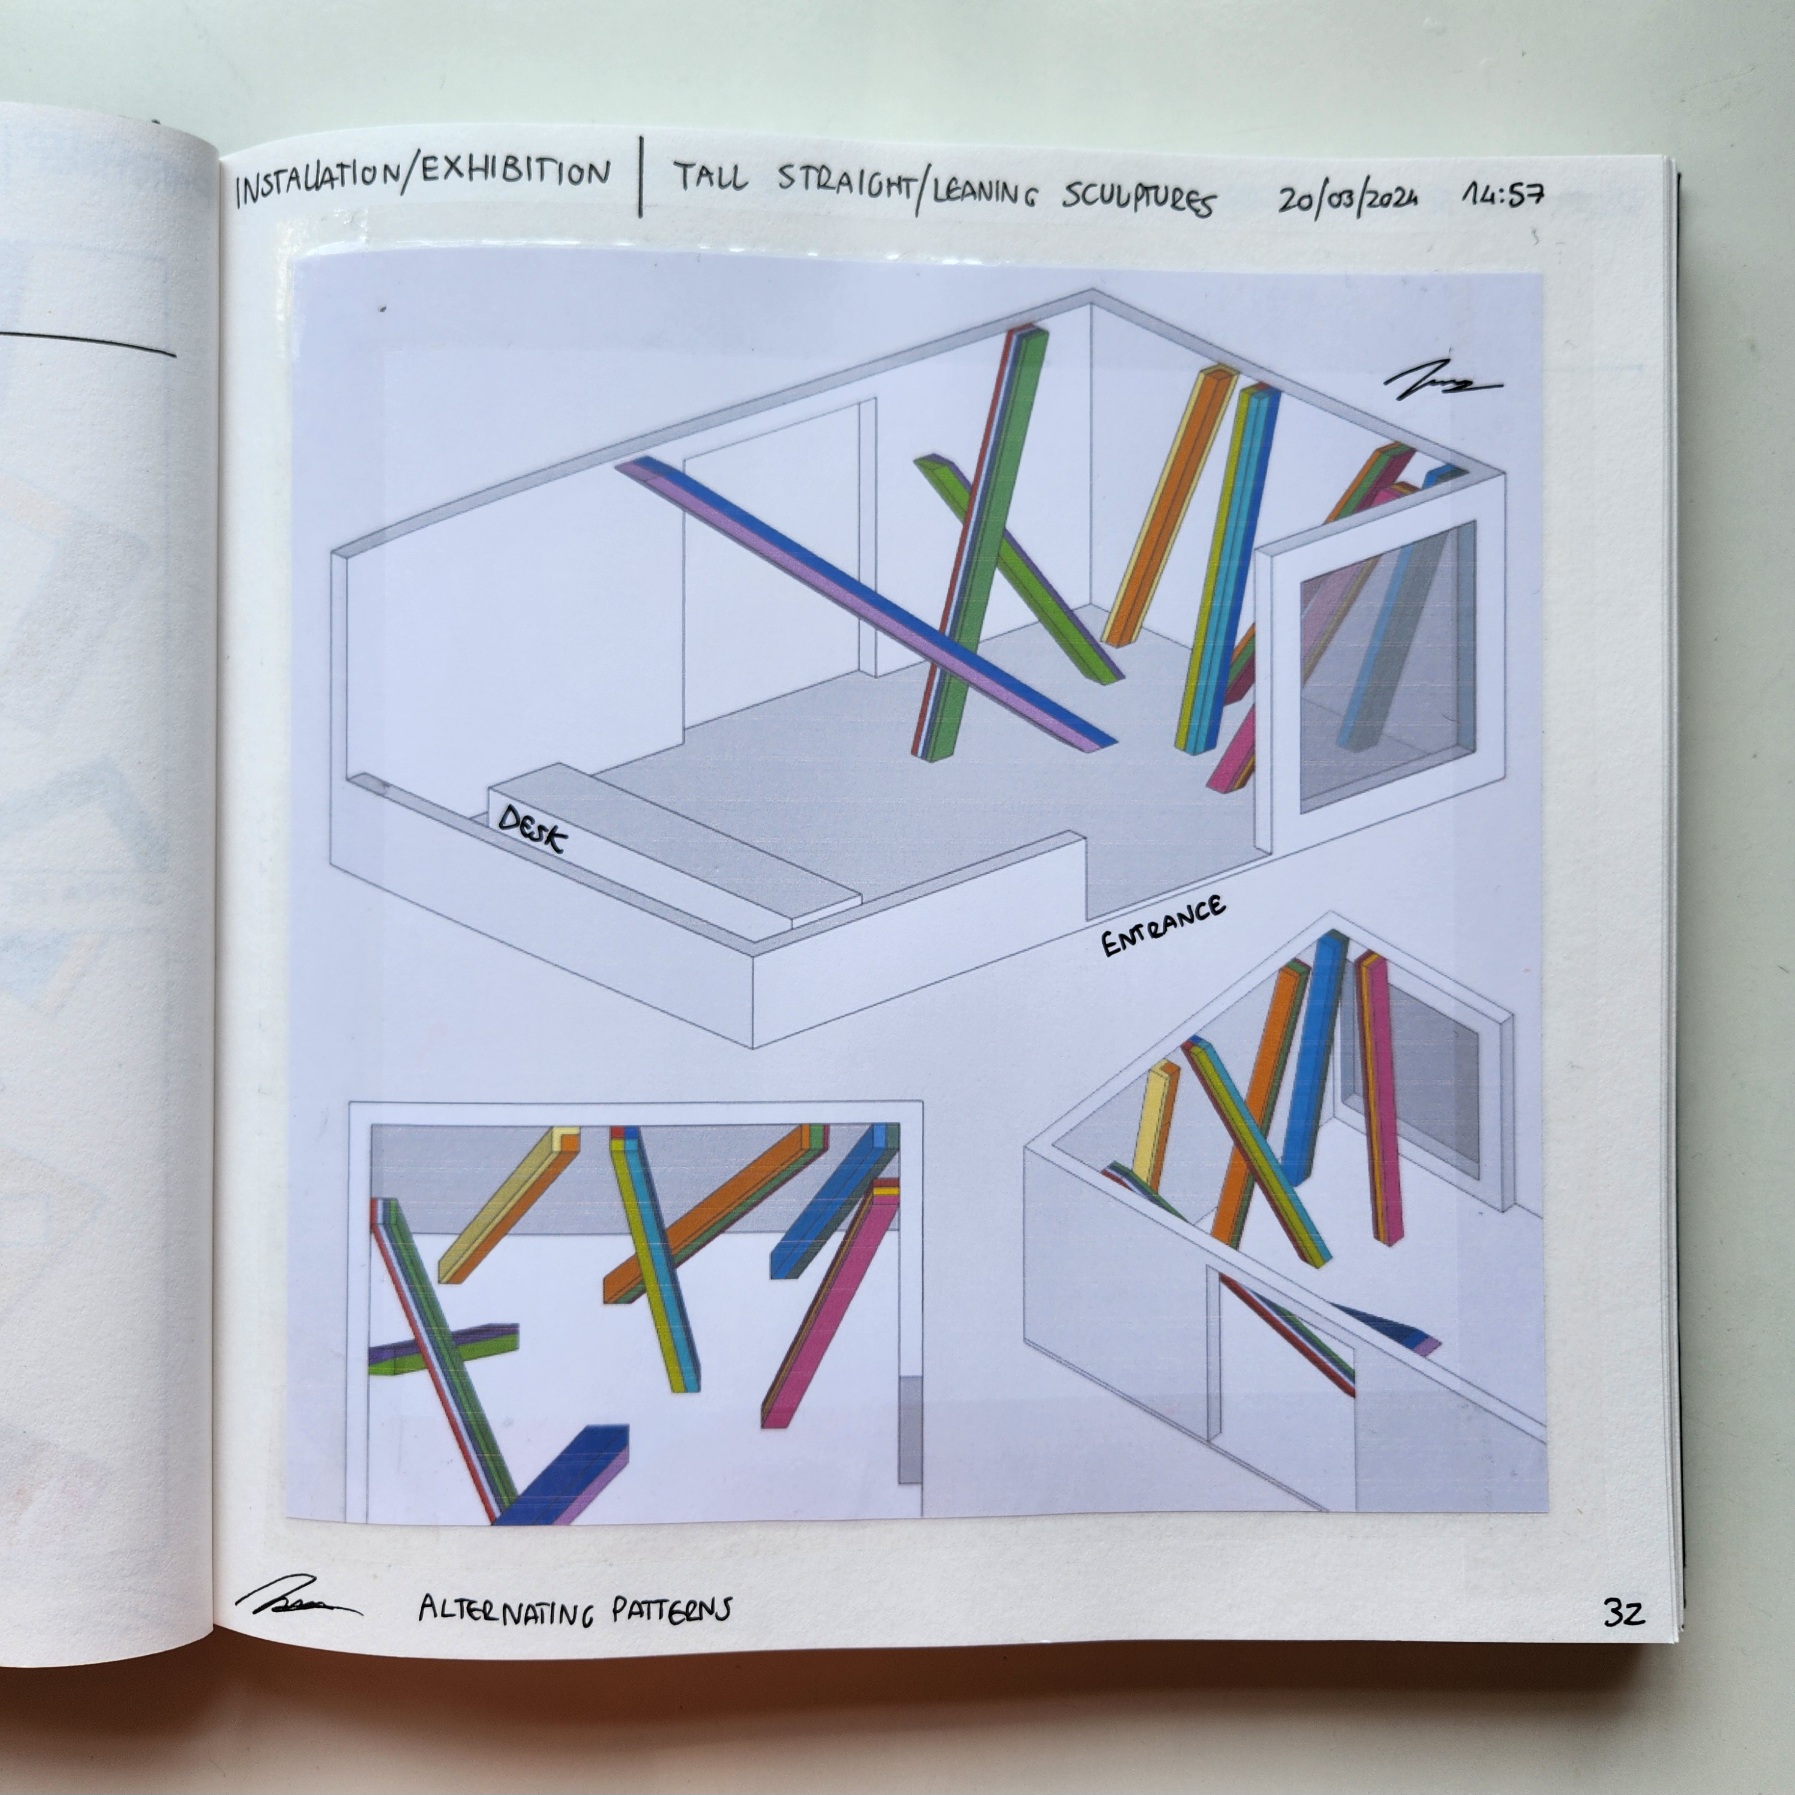 INSTALLATION/EXHIBITION | TALL STRAIGHT/LEANING SCULPTURES 20/03/2024 14:57
DESK
ENTRANCE
ALTERNATING PATTERNS
32